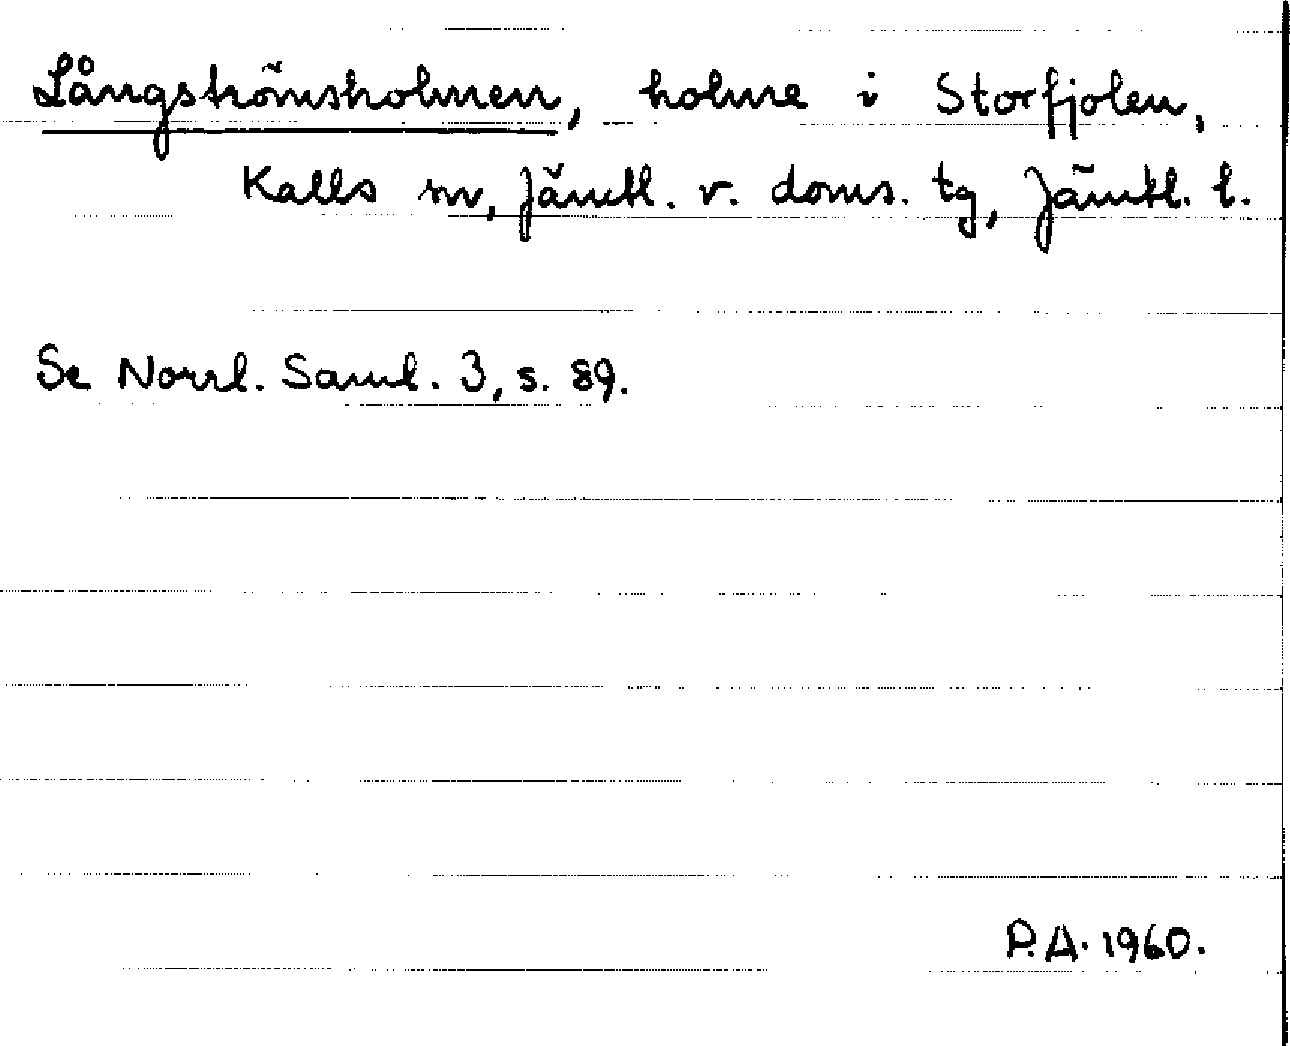 Långströmsholmen, holme i Storfjolen,
Kalls sn, Jämtl. v. doms. tg, Jämtl. l.
Se Norrl. Saml. 3, s. 89.
P.A. 1960.